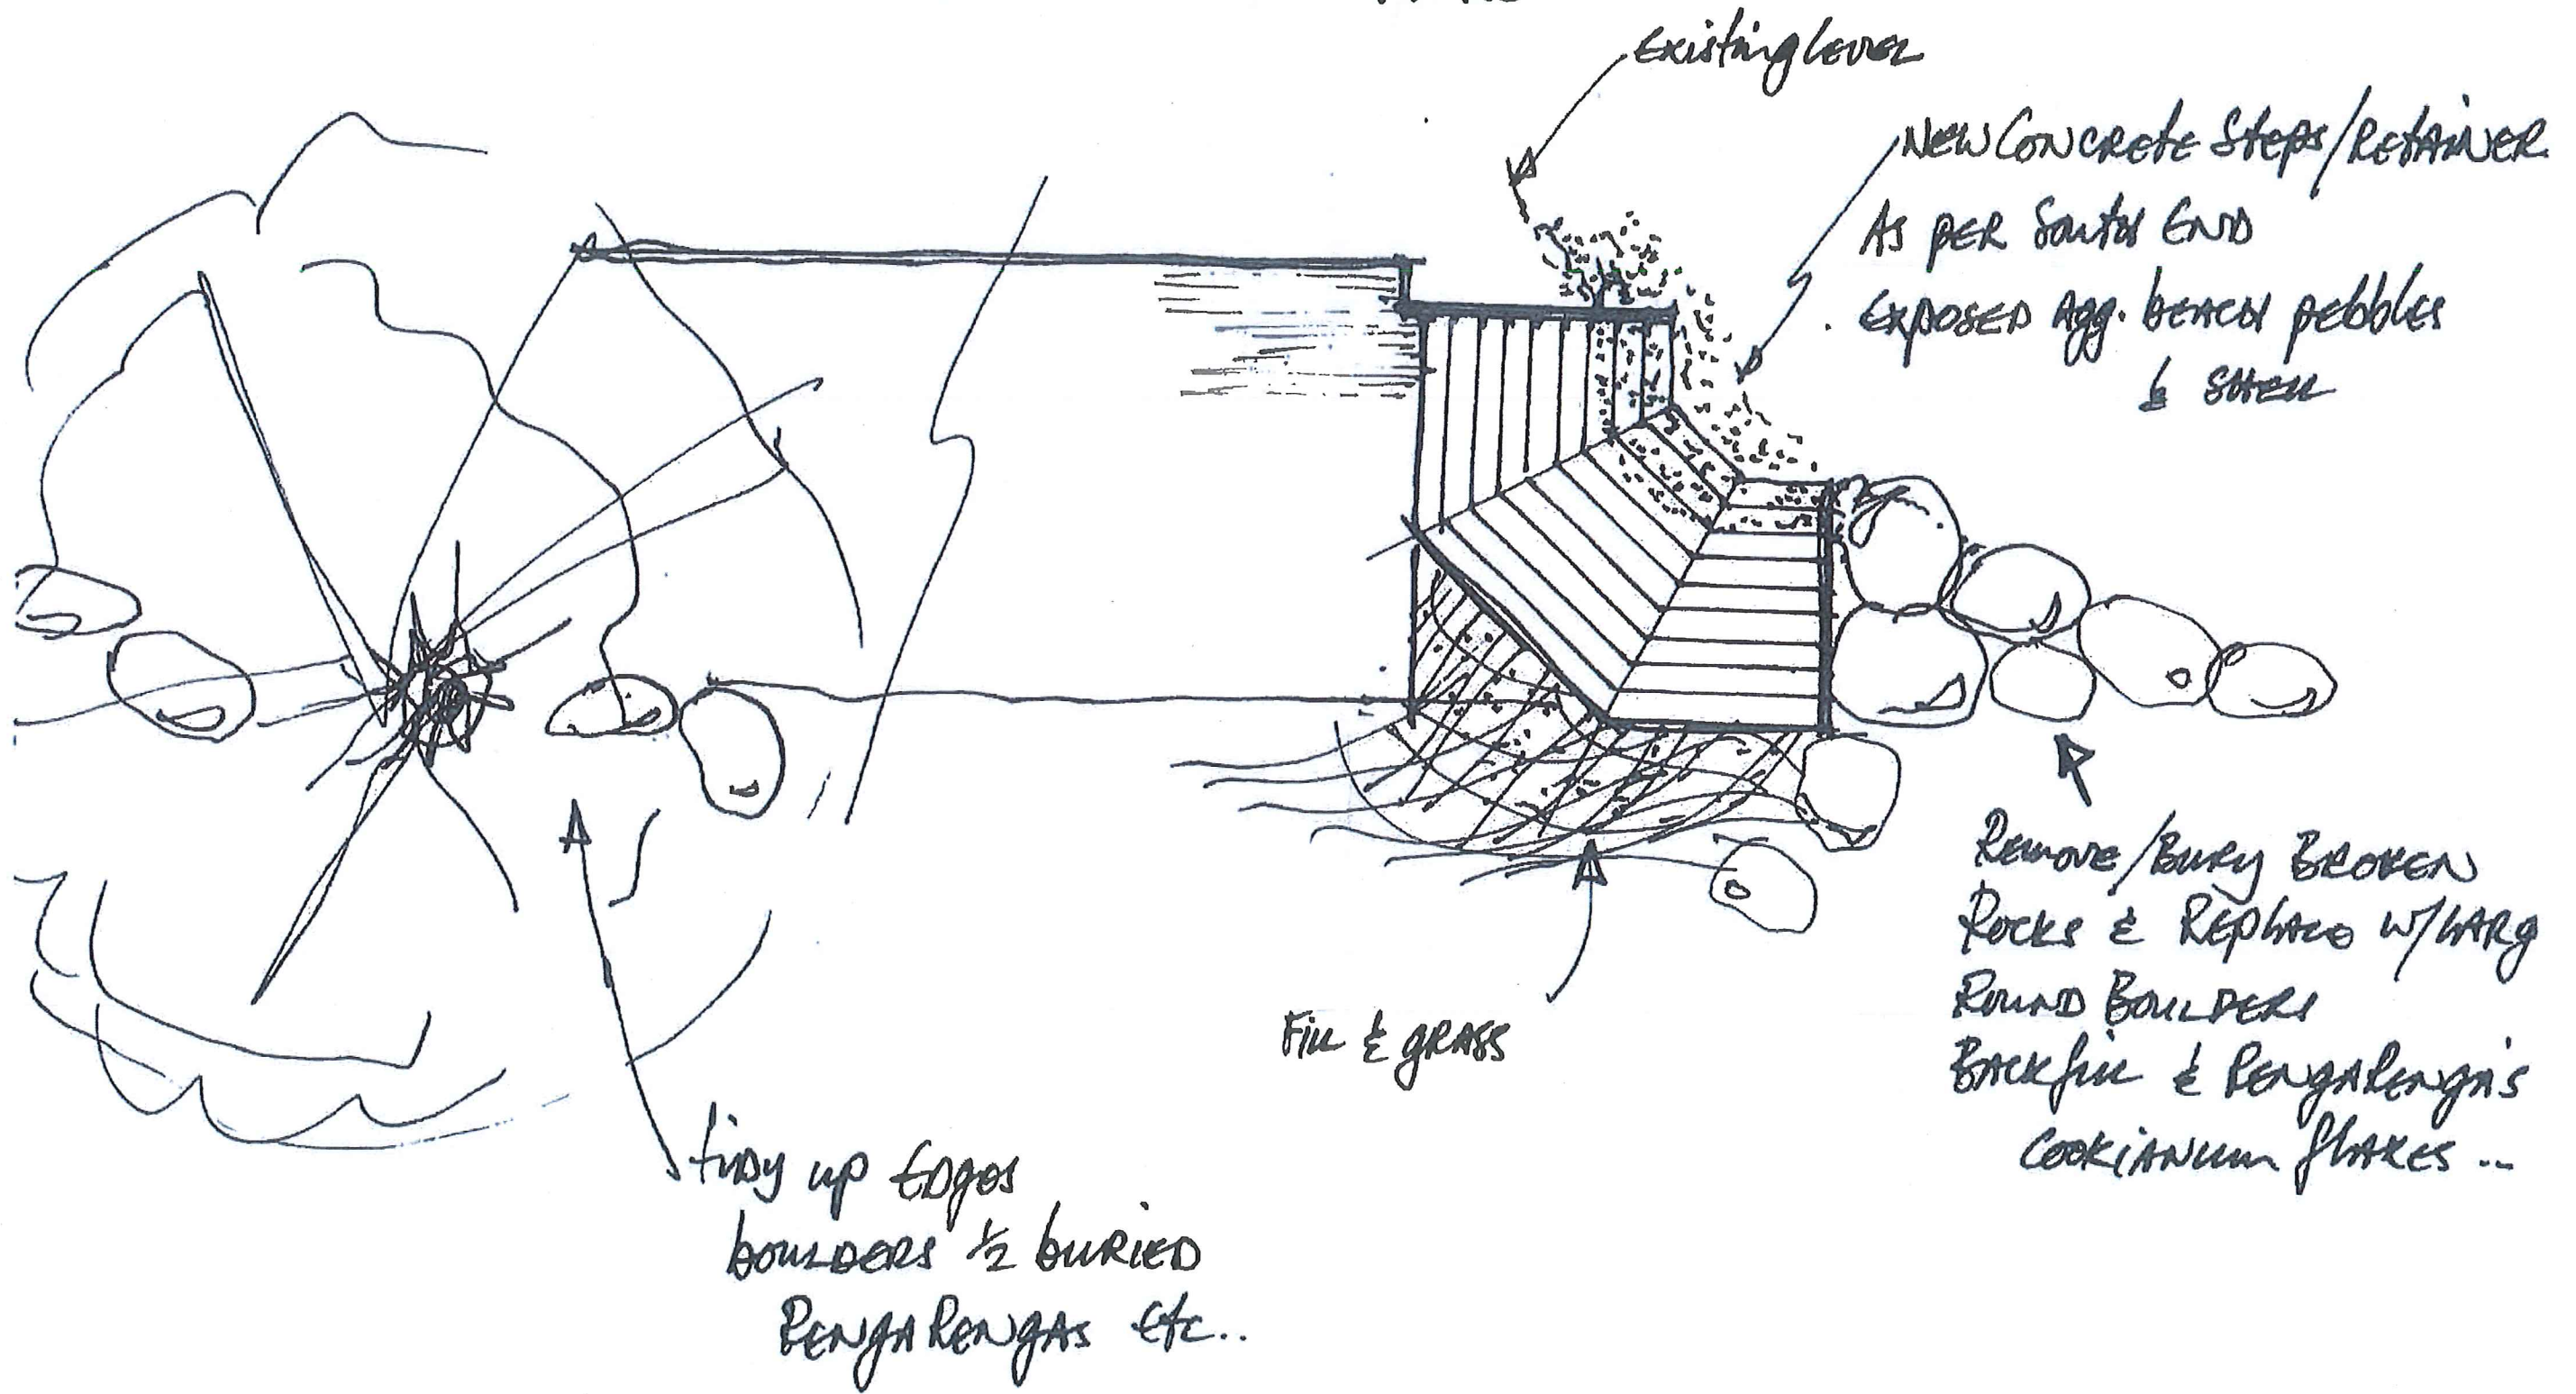 Existing level
New Concrete Steps/Retainer
As per South End
Exposed Agg. beach pebbles
& shell
Remove/Bury Broken
Rocks & Replace w/Larg
Round Boulders
Backfill & RengaRenga's
Cookianum flaxes ..
Fill & grass
tidy up Edges
boulders ½ buried
RengaRengas Etc..